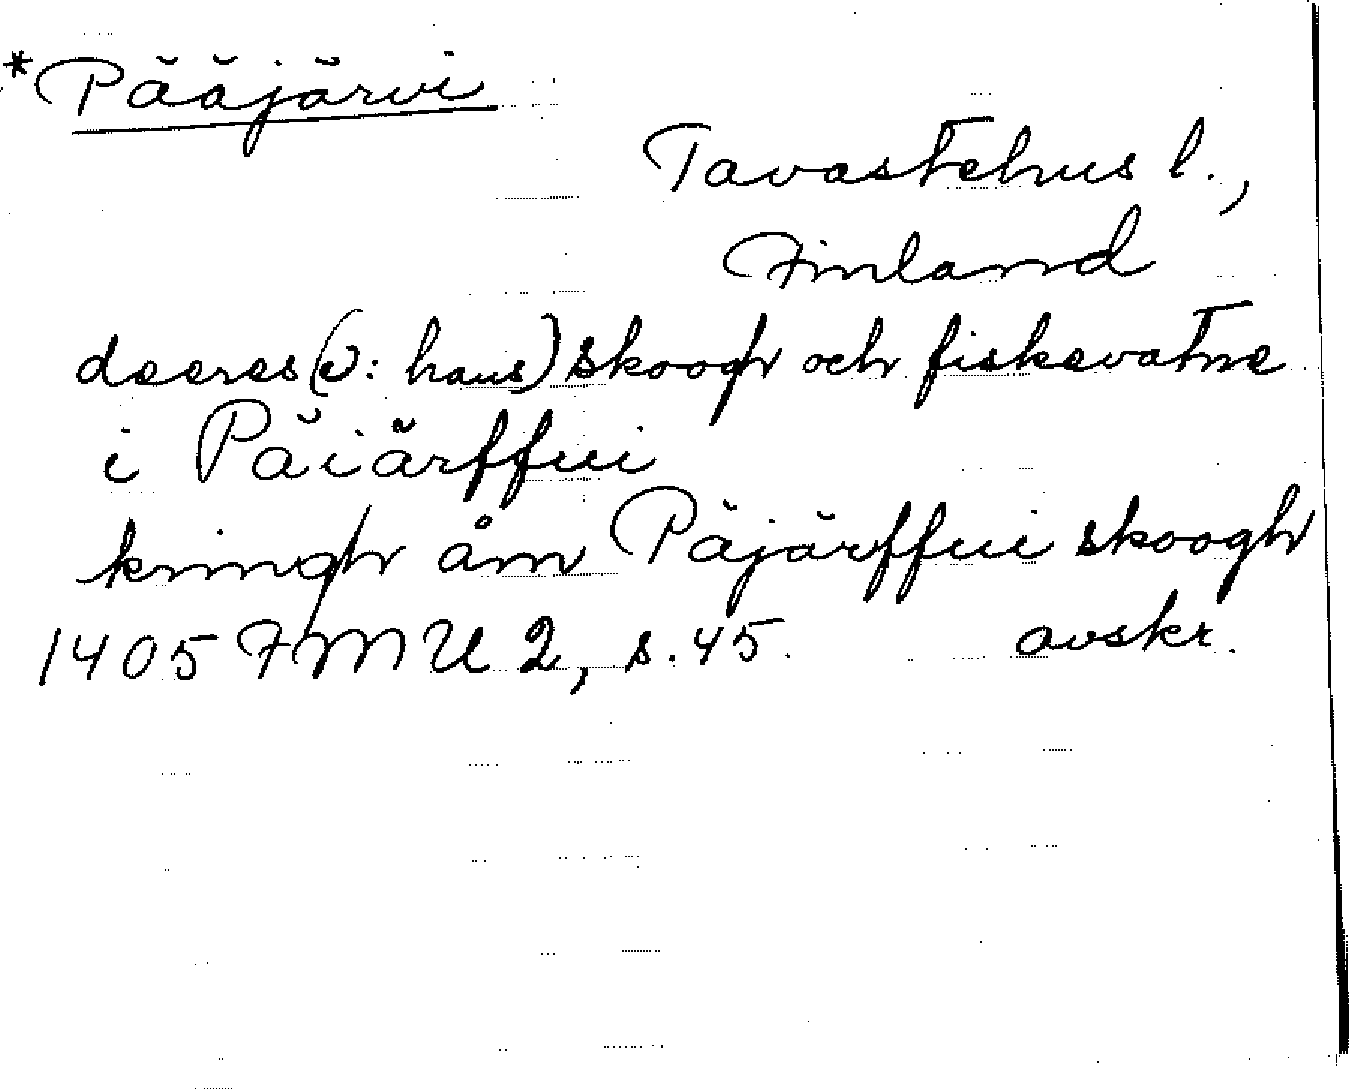 *Pääjärvi
Tavastehus l.,
Finland
deeres (ɔ: hans) skoogh och fiskevatne
i Päiärffui
kringh åm Päjärffui skoogh
1405 FMU 2, s. 45. avskr.